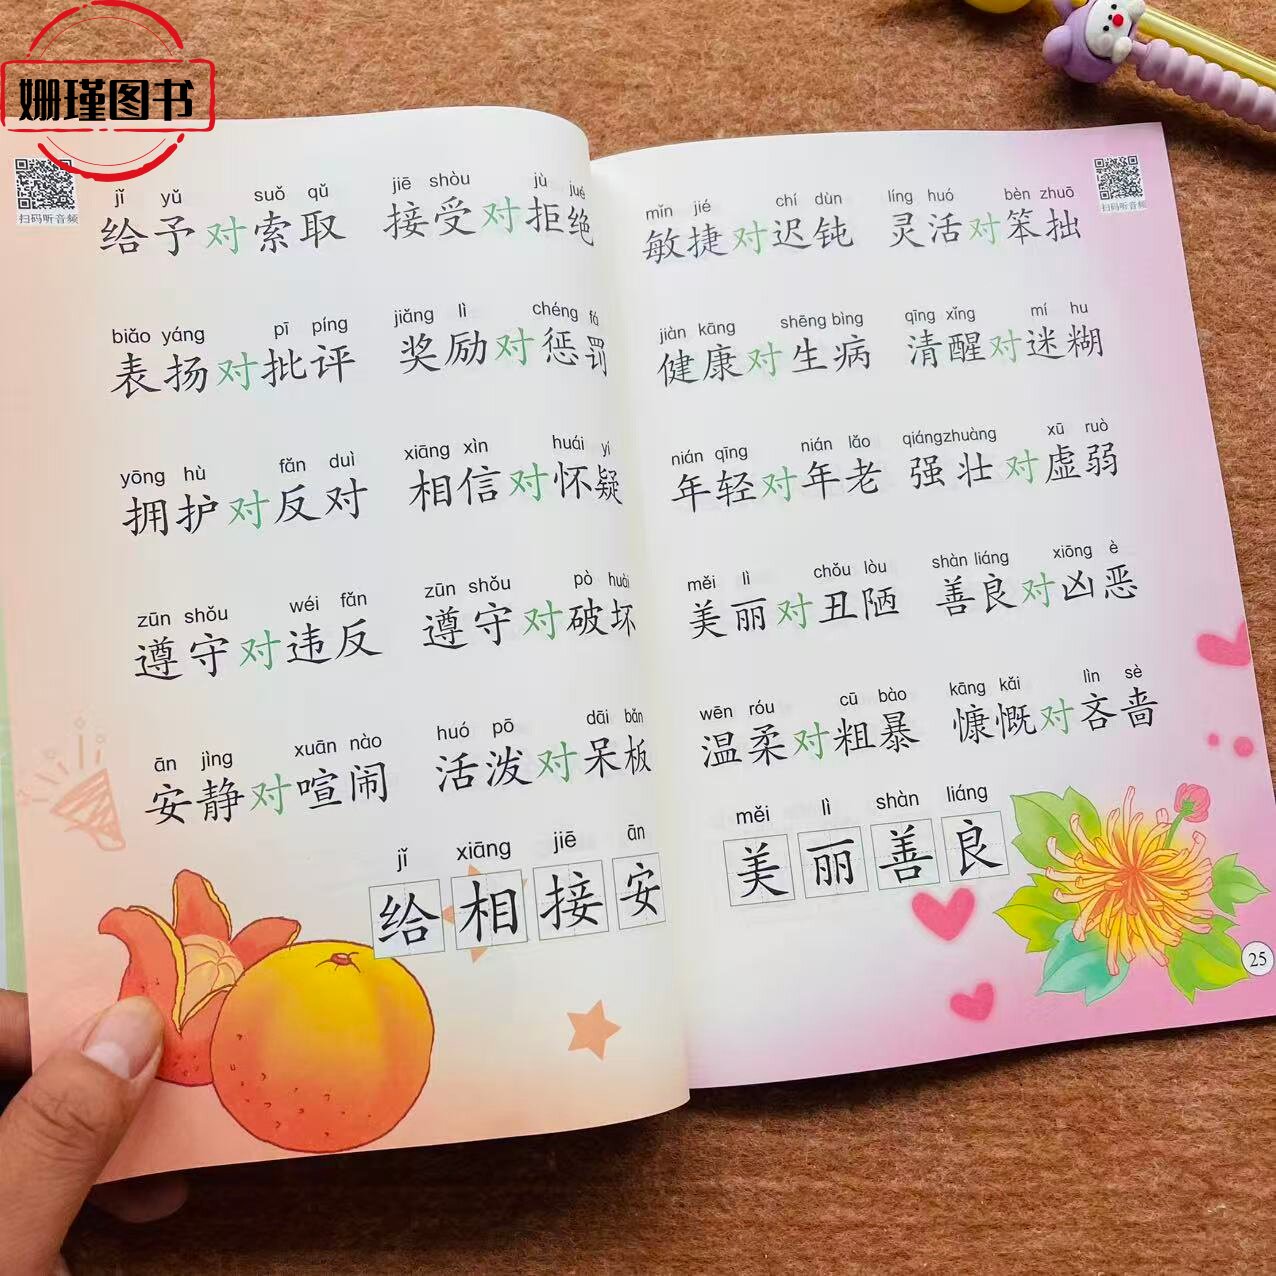 姗瑾图书
扫码听音频
jǐ yǔ suǒ qǔ jiē shòu jù jué
给予对索取 接受对拒绝
biǎo yáng pī píng jiǎng lì chéng fá
表扬对批评 奖励对惩罚
yōng hù fǎn duì xiāng xìn huái yí
拥护对反对 相信对怀疑
zūn shǒu wéi fǎn zūn shǒu pò huài
遵守对违反 遵守对破坏
ān jìng xuān nào huó pō dāi bǎn
安静对喧闹 活泼对呆板
jǐ xiāng jiē ān
给相接安
扫码听音频
mǐn jié chí dùn líng huó bèn zhuō
敏捷对迟钝 灵活对笨拙
jiàn kāng shēng bìng qīng xǐng mí hu
健康对生病 清醒对迷糊
nián qīng nián lǎo qiángzhuàng xū ruò
年轻对年老 强壮对虚弱
měi lì chǒu lòu shàn liáng xiōng è
美丽对丑陋 善良对凶恶
wēn róu cū bào kāng kǎi lìn sè
温柔对粗暴 慷慨对吝啬
měi lì shàn liáng
美丽善良
25